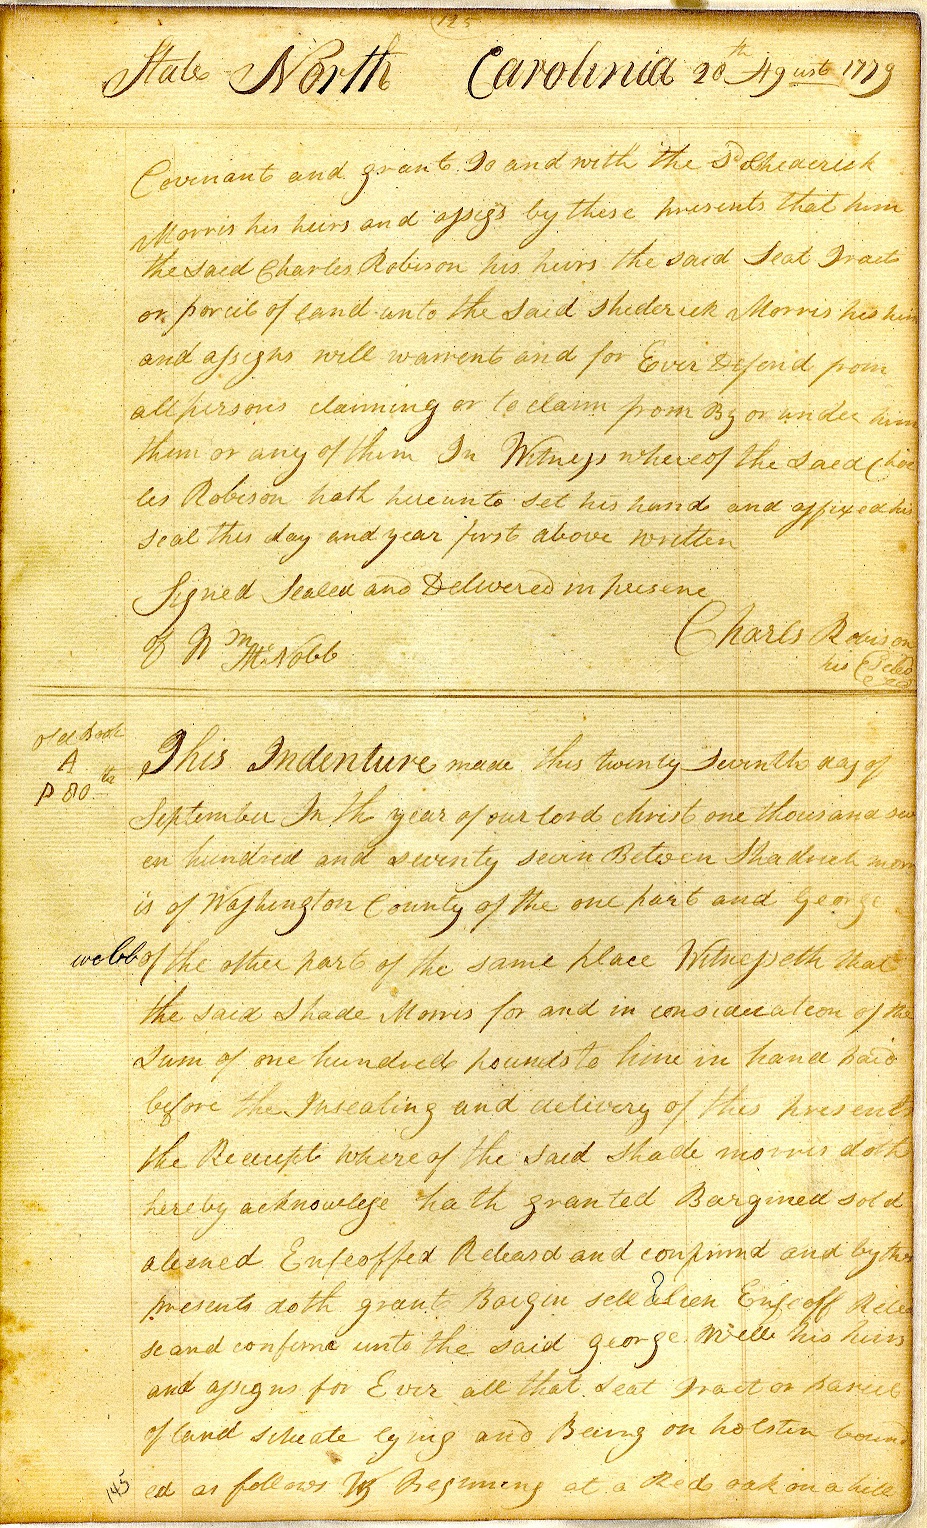 125
State North Carolinia 20th Agust 1779
Covenant and grant To and with the Sd Shederick
Morris his heirs and assigs by these presents that him
the said Charles Robison his heirs the said Seat Tract
or parcil of land unto the said Shederick Morris his heir
and assigns will warrent and for Ever Defend from
all persons claiming or to claim from By or under him
them or any of them In Witness whereof the said Char
les Robison hath hereunto set his hand and affixed his
seal this day and year first above written
Signed Sealed and Delivered in presene
of Wm McNobb
Charls Robison
his Seal
old Book
A
P 80th
This Indenture made this twenty Seventh day of
September In th year of our lord christ one thousand sev
en hundred and seventy sevin Betwen Shadrick morr
is of Washington County of the one part and George
webb of the other part of the same place Witnesseth that
the said Shade Morris for and in consideration of the
Sum of one hundred pounds to hime in hand paid
before the Insealing and delivery of this presents
the Receipt where of the said Shade morris doth
hereby acknowlege hath granted Bargined sold
aliened Enfeoffed Releasd and confirmd and by thes
presents doth grant Bargin sell alien Enfeoff Relea
se and confirm unto the said george Wells his heirs
and assigns for Ever all that Seat Tract or parcel
of land situate lying and Being on holsten bound
ed as follows Beginning at a Red oak on a hill
145